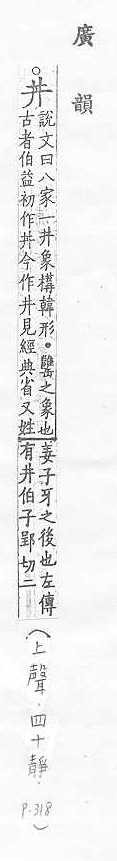 廣韻
。丼說文曰八家一井象構韓形·䍌之象也
古者伯益初作井今作井見經典省又姓
姜子牙之後也左傳
有井伯子郢切二
(上聲·四十靜·
P.318)